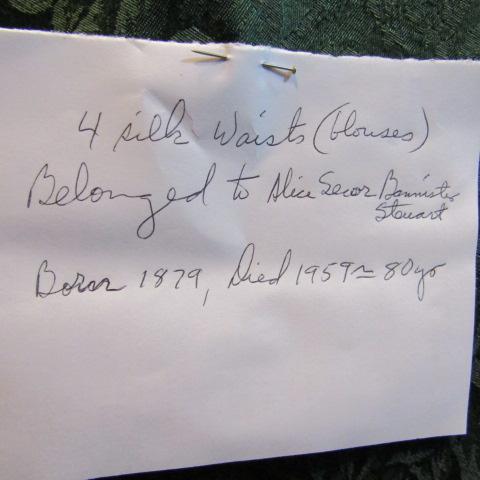 4 silk Waists (blouses)
Belonged to Alice Secor Bannister
Stewart
Born 1879, Died 1959 ≈ 80yo